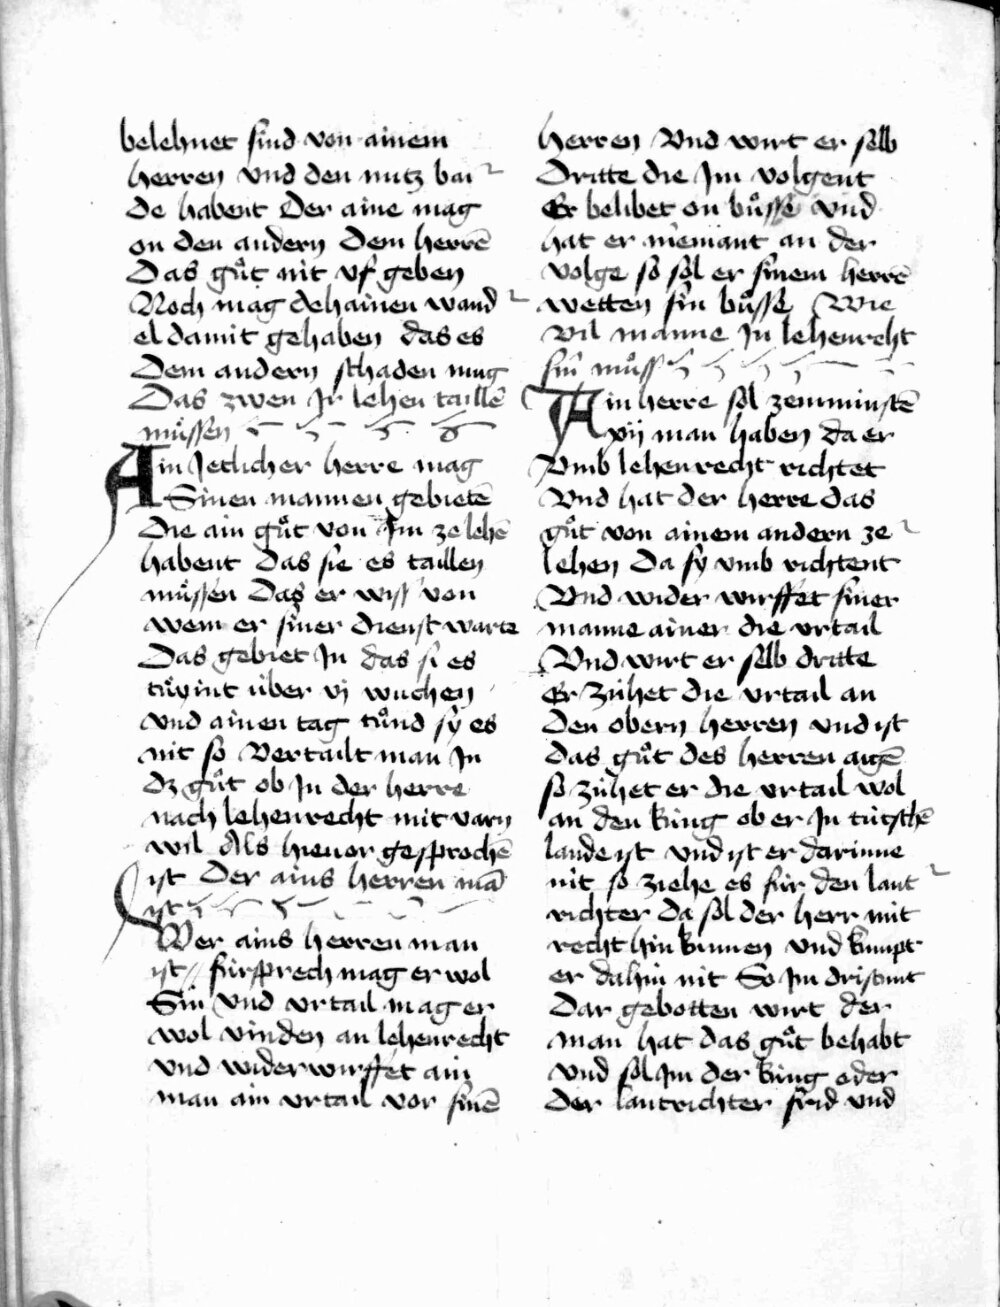 belehnet sind von ainem
herren vnd den nutz bai
de habent Der aine mag
on den andern Dem herrē
Das gůt nit vf geben
Noch mag dehainen wand
el damit gehaben das es
Dem andern schaden mug
Das zwen Jr lehen taillē
můssen
Ain Jetlicher herre mag
Sinen mannen gebietē
Die ain gůt von Jm ze lehē
habent das sie es taillen
můssen Das er wiss von
wem er siner dienst warte
Das gebiet Jn das si es
tůyint über vj wuchen
vnd ainen tag tůnd sÿ es
nit so Vertailt man Jn
dz gůt ob Jn der herre
nach lehenrecht mit varn
wil Als hieuor gesprochē
ist Der ains herren mā
ist
Wer ains herren man
ist fürsprech mag er wol
Sin vnd vrtail mag er
wol vinden an lehenrecht
vnd widerwurffet ain
man ain vrtail vor sinē
herren Vnd wirt er selb
Dritte die Jm volgent
Er belibet on bůsse vnd
hat er niemant an der
volge so sol er sinem herrē
wetten sin bůsse Wie
vil manne Jn lehenreht
sin můss
Ain herre sol zemminstē
xij man haben da er
Vmb lehenrecht richtet
Vnd hat der herre das
gůt von ainem andern ze
lehen Da sy vmb richtent
Vnd wider wirffet siner
manne ainer die vrtail
Vnd wirt er selb dritte
Er zühet die vrtail an
den obern herren vnd ist
das gůt des herren aigē
so zühet er die vrtail wol
an den küng ob er Jn tütschē
lande ist vnd ist er darinne
nit so ziehe es für den lant
richter da sol der herr mit
recht hin kumen vnd kumpt
er dahin nit So Jm dristunt
Dar gebotten wirt der
man hat das gůt behabt
vnd sol Jm der küng oder
der lantrichter frid vnd